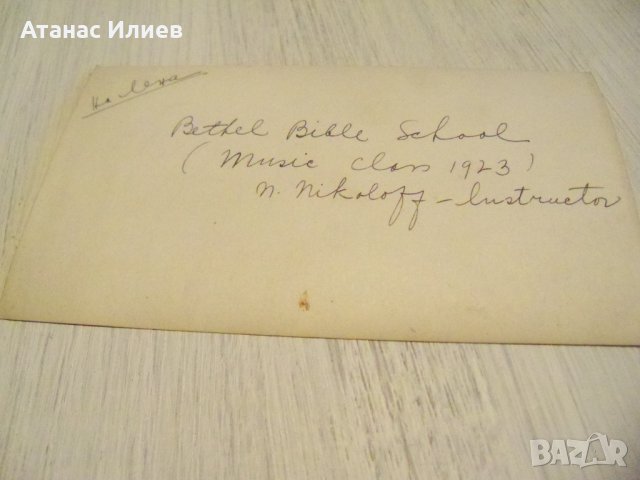 Атанас Илиев
на Лена
Bethel Bible School
(Music Class 1923)
N. Nikoloff – Instructor
BAZAR